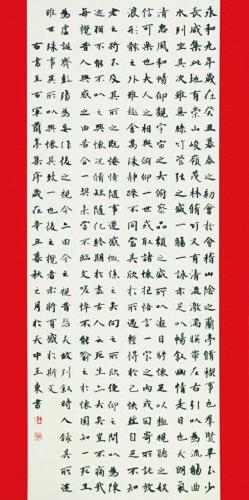 永和九年歲在癸丑暮春之初會於會稽山陰之蘭亭脩稧事也羣賢畢至少
長咸集此地有崇山峻嶺茂林脩竹又有清流激湍映帶左右引以為流觴曲
水列坐其次雖無絲竹管弦之盛一觴一詠亦足以暢敘幽情是日也天朗氣
清惠風和暢仰觀宇宙之大俯察品類之盛所以遊目騁懷足以極視聽之娛
信可樂也夫人之相與俯仰一世或取諸懷抱悟言一室之內或因寄所託放
浪形骸之外雖趣舍萬殊靜躁不同當其欣於所遇暫得於己快然自足不知
老之將至及其所之既惓情隨事遷感慨係之矣向之所欣俛仰之間以為陳
迹猶不能不以之興懷況脩短隨化終期於盡古人云死生亦大矣豈不痛哉
每攬昔人興感之由若合一契未嘗不臨文嗟悼不能喻之於懷固知一死生
為虛誕齊彭殤為妄作後之視今亦由今之視昔悲夫故列敘時人錄其所述
雖世殊事異所以興懷其致一也後之攬者亦將有感於斯文
右書王右軍蘭亭集序歲在辛丑暮秋之月於天中王東書